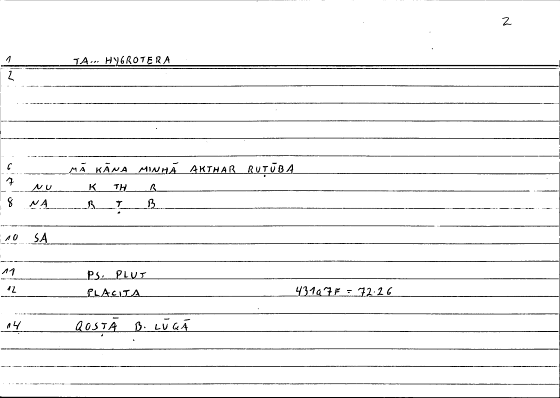 2
1 TA... HYGROTERA
2
6 MĀ KĀNA MINHĀ AKTHAR RUṬŪBA
7 NU K TH R
8 NA R Ṭ B
10 SA
11 PS. PLUT
12 PLACITA 431a7F = 72.26
14 QOSṬĀ B. LŪGĀ